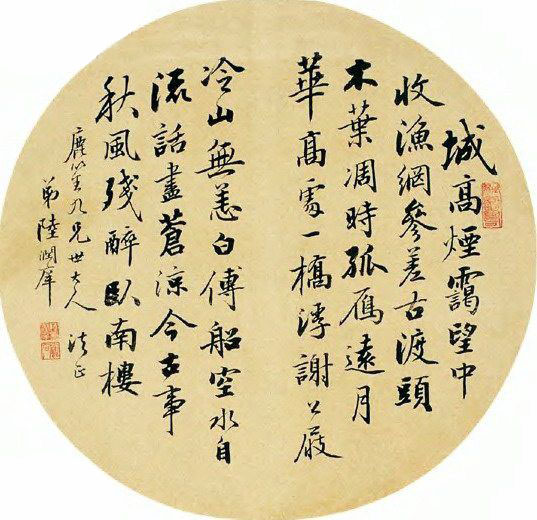 城高煙靄望中
收漁網參差古渡頭
木葉凋時孤雁遠月
華高處一橋浮謝公屐
冷山無恙白傅船空水自
流話盡蒼涼今古事
秋風殘醉臥南樓
鹿笙九兄世大人 法正
弟陸潤庠